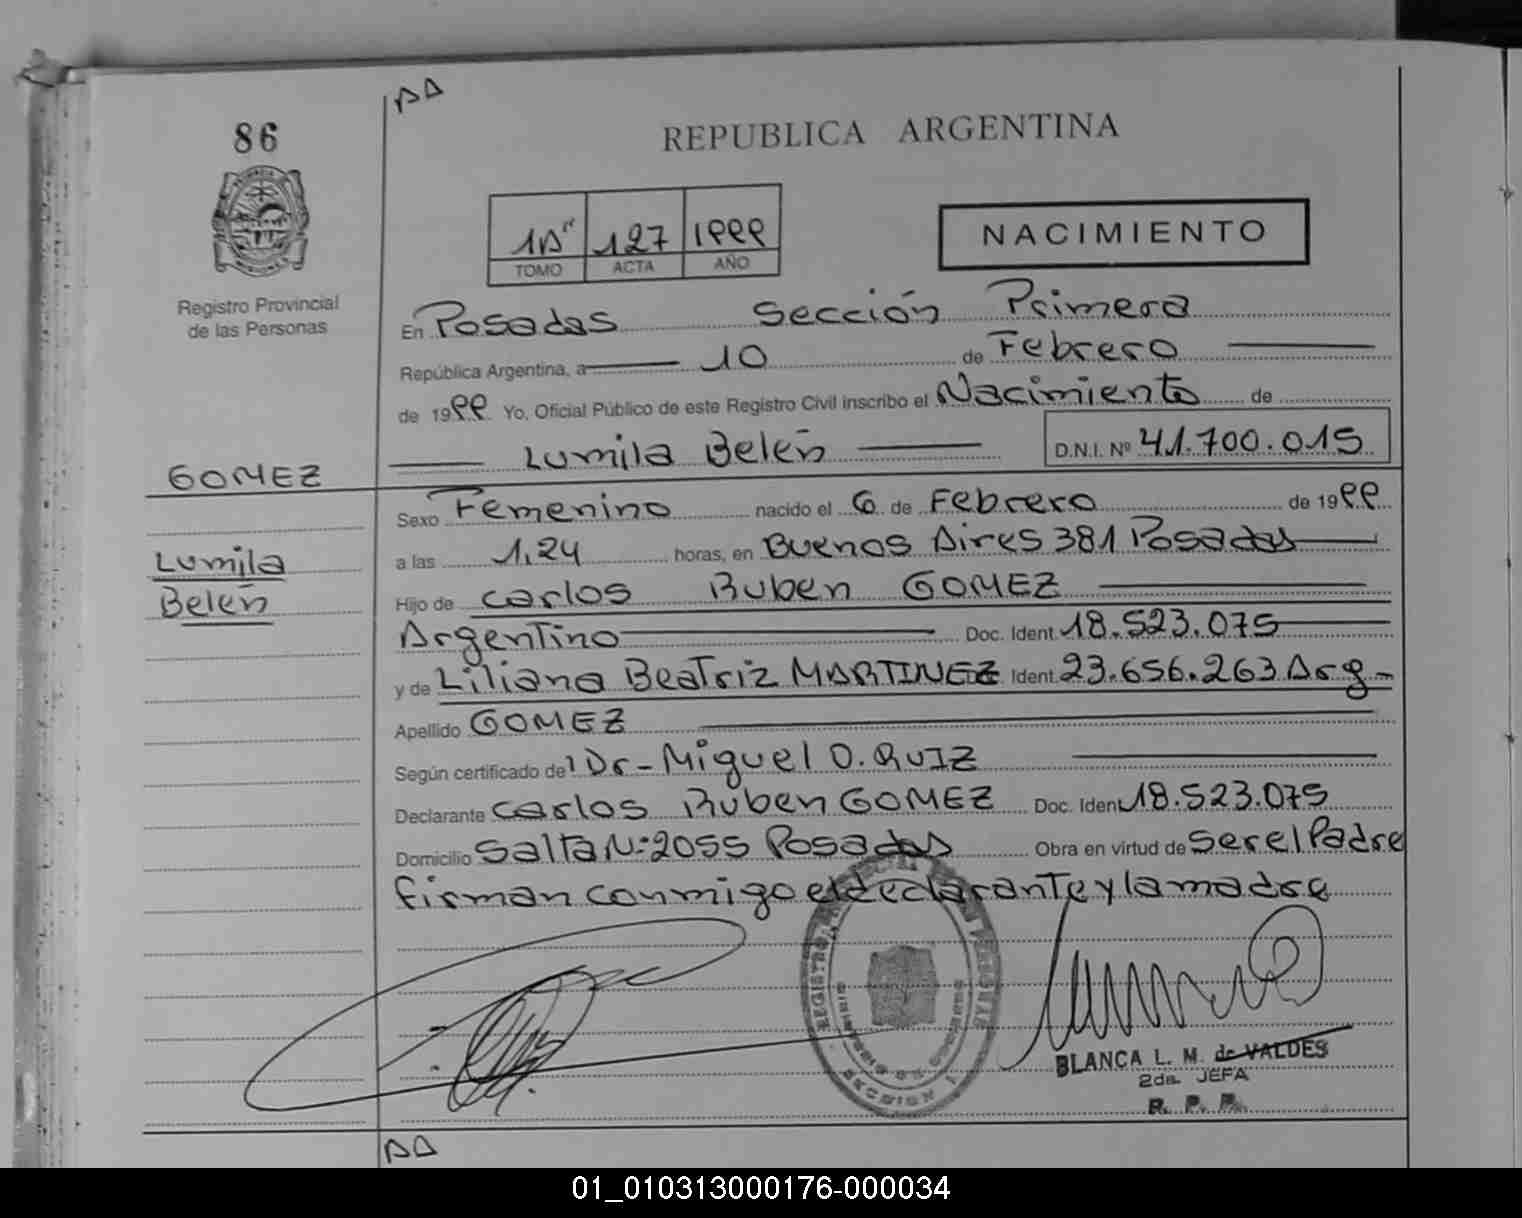 AA
86
REPUBLICA ARGENTINA
1A" 127 1999
TOMO ACTA AÑO
NACIMIENTO
Registro Provincial
de las Personas
En Posadas Sección Primera
República Argentina, a 10 de Febrero
de 1999 Yo, Oficial Público de este Registro Civil inscribo el Nacimiento de
Lumila Belén D.N.I. Nº 41.700.015
GOMEZ
Lumila
Belén
Sexo Femenino nacido el 6 de Febrero de 1999
a las 1,24 horas, en Buenos Aires 381 Posadas
Hijo de Carlos Ruben GOMEZ
Argentino Doc. Ident. 18.523.075
y de Liliana Beatriz MARTINEZ Ident. 23.656.263 Arg.
Apellido GOMEZ
Según certificado de Dr - Miguel O. RUIZ
Declarante Carlos Ruben GOMEZ Doc. Iden 18.523.075
Domicilio Salta N:2055 Posadas Obra en virtud de Ser el Padre
firman conmigo el declarante y la madre
BLANCA L. M. de VALDES
2da. JEFA
R. P. P.
SECCION 1
AA
01_010313000176-000034